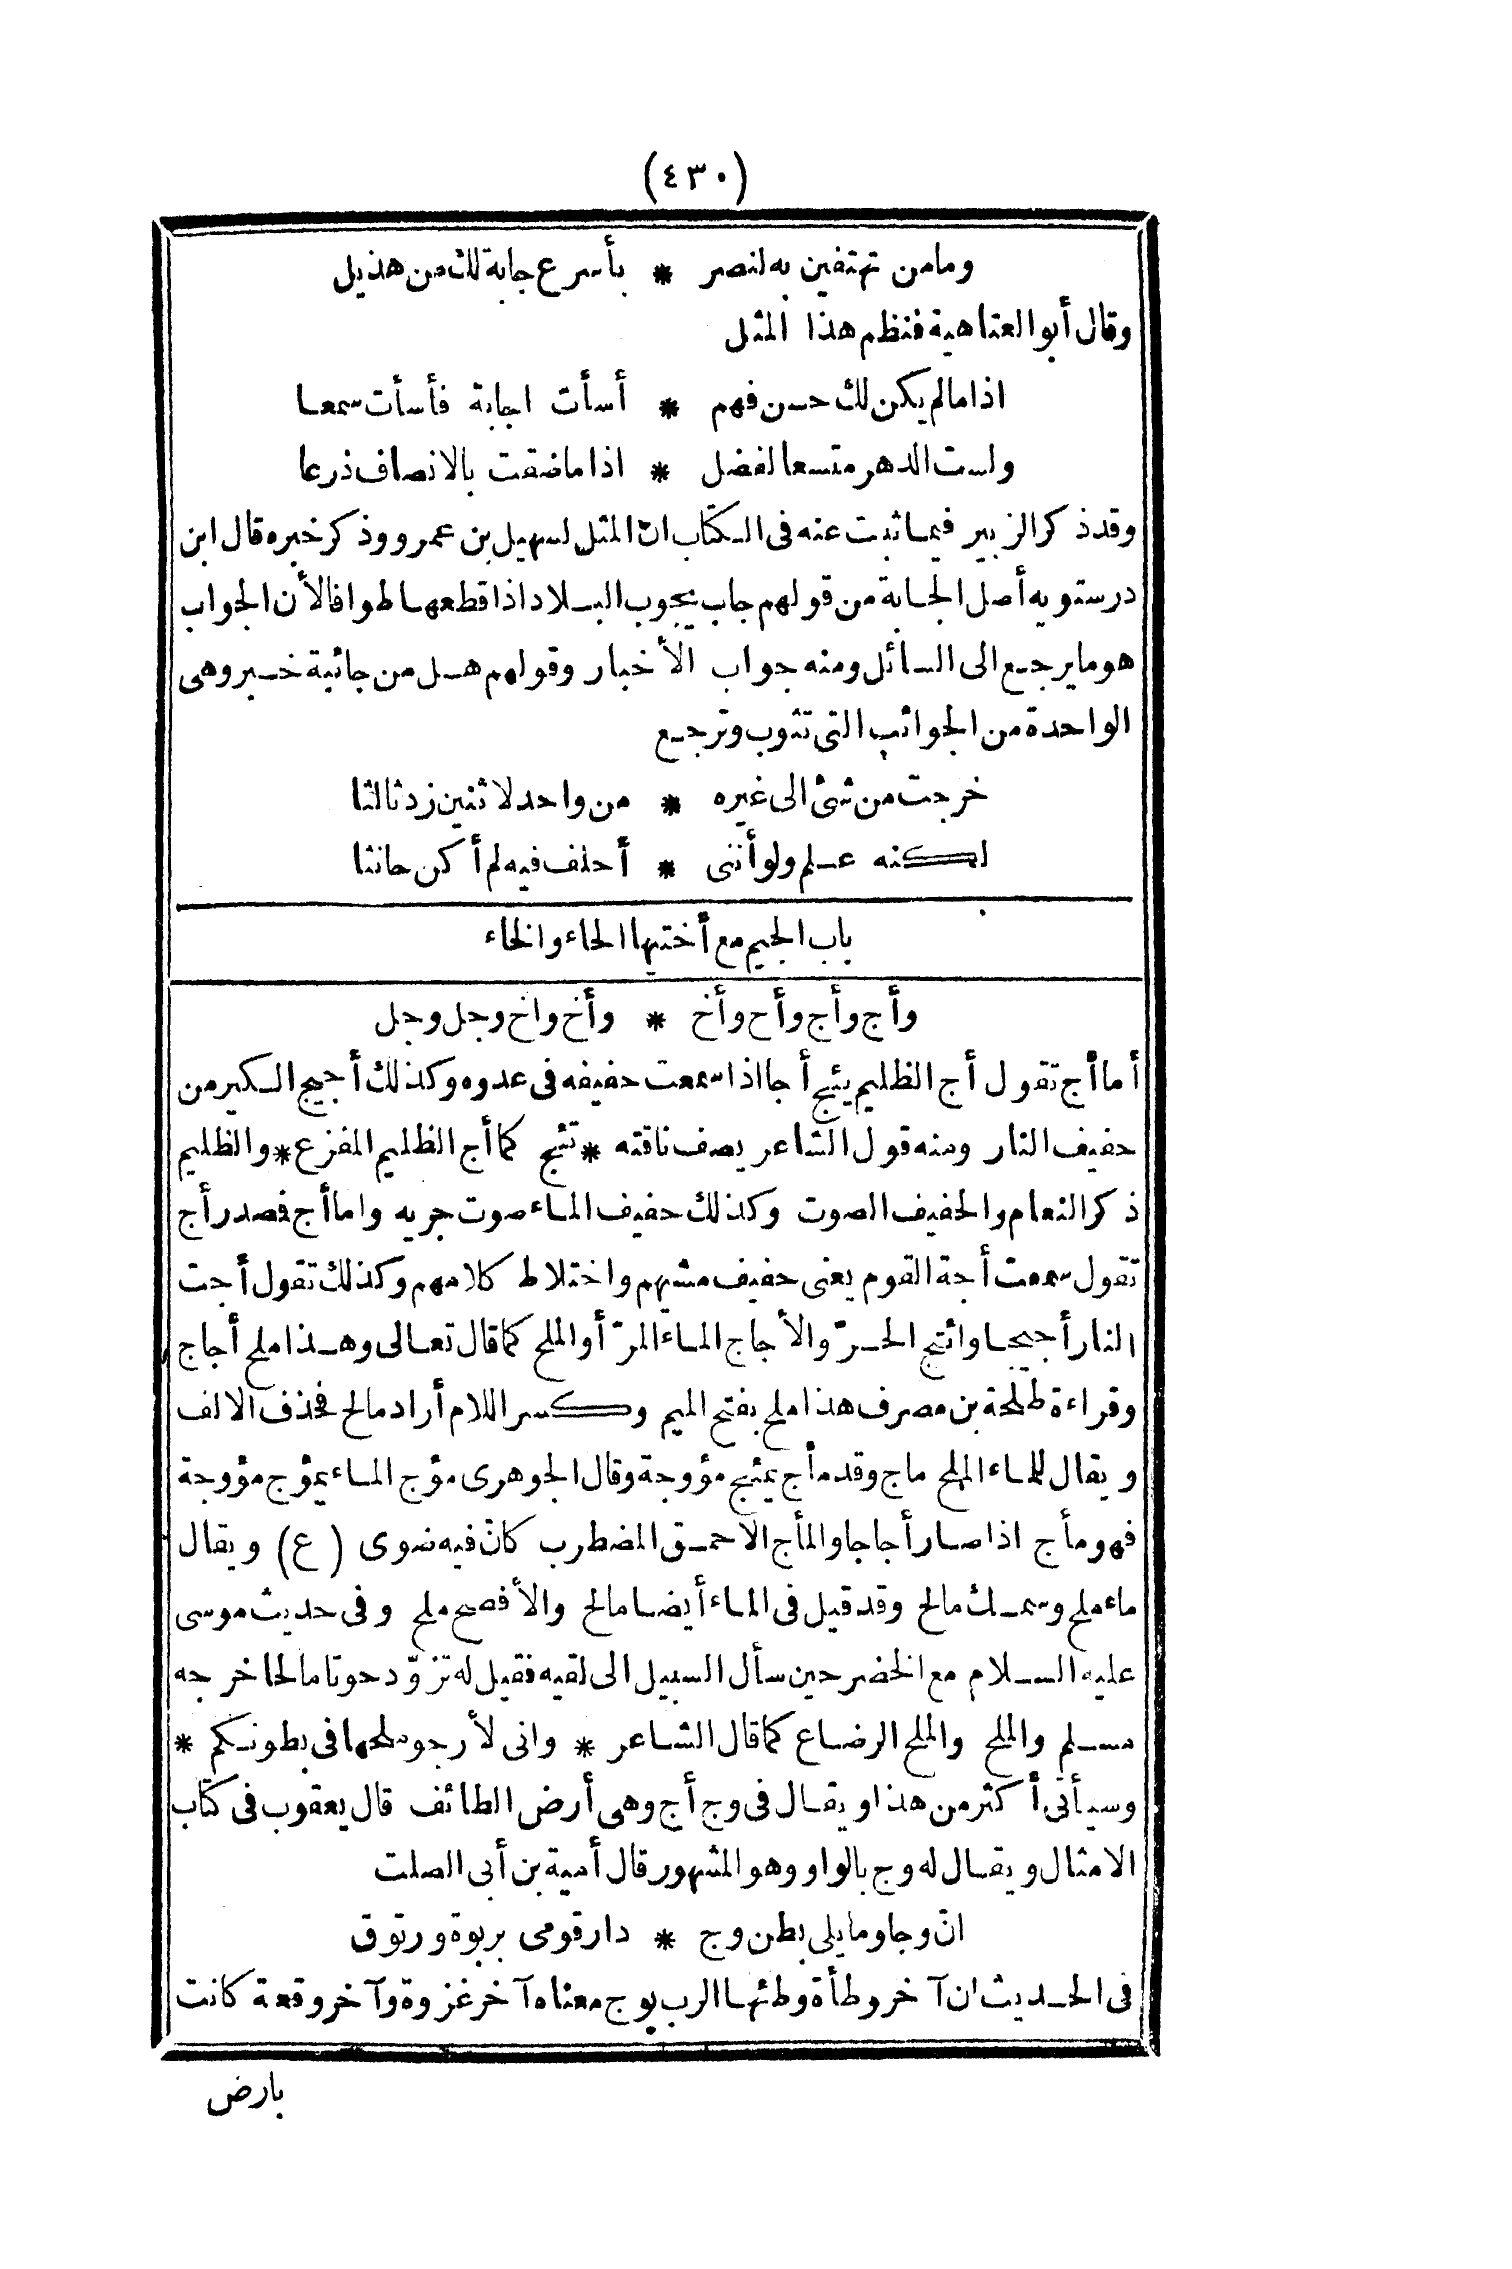 (٤٣٠)
ومامن تهتفين به لنصر * بأسرع جابة لك من هذيل
وقال أبو العتاهية فنظم هذا المثل
اذا مالم يكن لك حسن فهم * أسأت اجابة فأسأت سمعا
ولست الدهر متسعا لفضل * اذا ما ضقت بالانصاف ذرعا
وقد ذكر الزبير فيما ثبت عنه فى الكتاب انّ المثل لسهيل بن عمرو وذكر خبره قال ابن
درستويه أصل الجابة من قولهم جاب يجوب البلاد اذا قطعها طوافا لأن الجواب
هو ما يرجع الى السائل ومنه جواب الأخبار وقولهم هل من جائبة خبر وهى
الواحدة من الجوائب التى تثوب وترجع
خرجت من شئ الى غيره * من واحد لاثنين زد ثالثا
لكنه علم ولو أننى * أحلف فيه لم أكن حانثا
باب الجيم مع أختيها الحاء والخاء
وأج وأج وأح وأخ * وأخ واخ وجل وجل
أما أج تقول أج الظليم يئج أجا اذا سمعت حفيفه فى عدوه وكذلك أجيج الكير من
حفيف النار ومنه قول الشاعر يصف ناقته * تئج كما أج الظليم المفزع * والظليم
ذكر النعام والحفيف الصوت وكذلك حفيف الماء صوت جريه واما أج فصدر أج
تقول سمعت أجة القوم يعنى حفيف مشيهم واختلاط كلامهم وكذلك تقول أجت
النار أجيجا وائتج الحرّ والأجاج الماء المرّ أو الملح كما قال تعالى وهذا ملح أجاج
وقراءة طلحة بن مصرف هذا ملح بفتح الميم وكسر اللام أراد مالح فحذف الالف
ويقال للماء الملح ماج وقد مأج يمئج مؤوجة وقال الجوهرى مؤج الماء يمؤج مؤوجة
فهو مأج اذا صار أجاجا والمأج الاحمق المضطرب كانّ فيه ضوى (ع) ويقال
ماء ملح وسمك مالح وقد قيل فى الماء أيضا مالح والأفصح ملح وفى حديث موسى
عليه السلام مع الخضر حين سأل السبيل الى لقيه فقيل له تزوّد حوتا مالحا خرجه
مسلم والملح والملح الرضاع كما قال الشاعر * وانى لأرجو ملحها فى بطونكم *
وسيأتى أكثر من هذا ويقال فى وج أج وهى أرض الطائف قال يعقوب فى كتاب
الامثال ويقال له وج بالواو وهو المشهور قال أمية بن أبى الصلت
انّ وجا وما يلى بطن وج * دار قومى بربوة ورتوق
فى الحديث ان آخر وطأة وطئها الرب بوج معناه آخر غزوة وآخر وقعة كانت
بارض